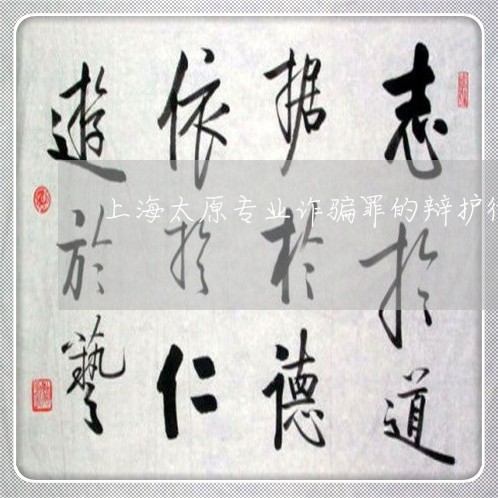 志於道
据於德
依於仁
遊於藝
上海太原专业诈骗罪的辩护